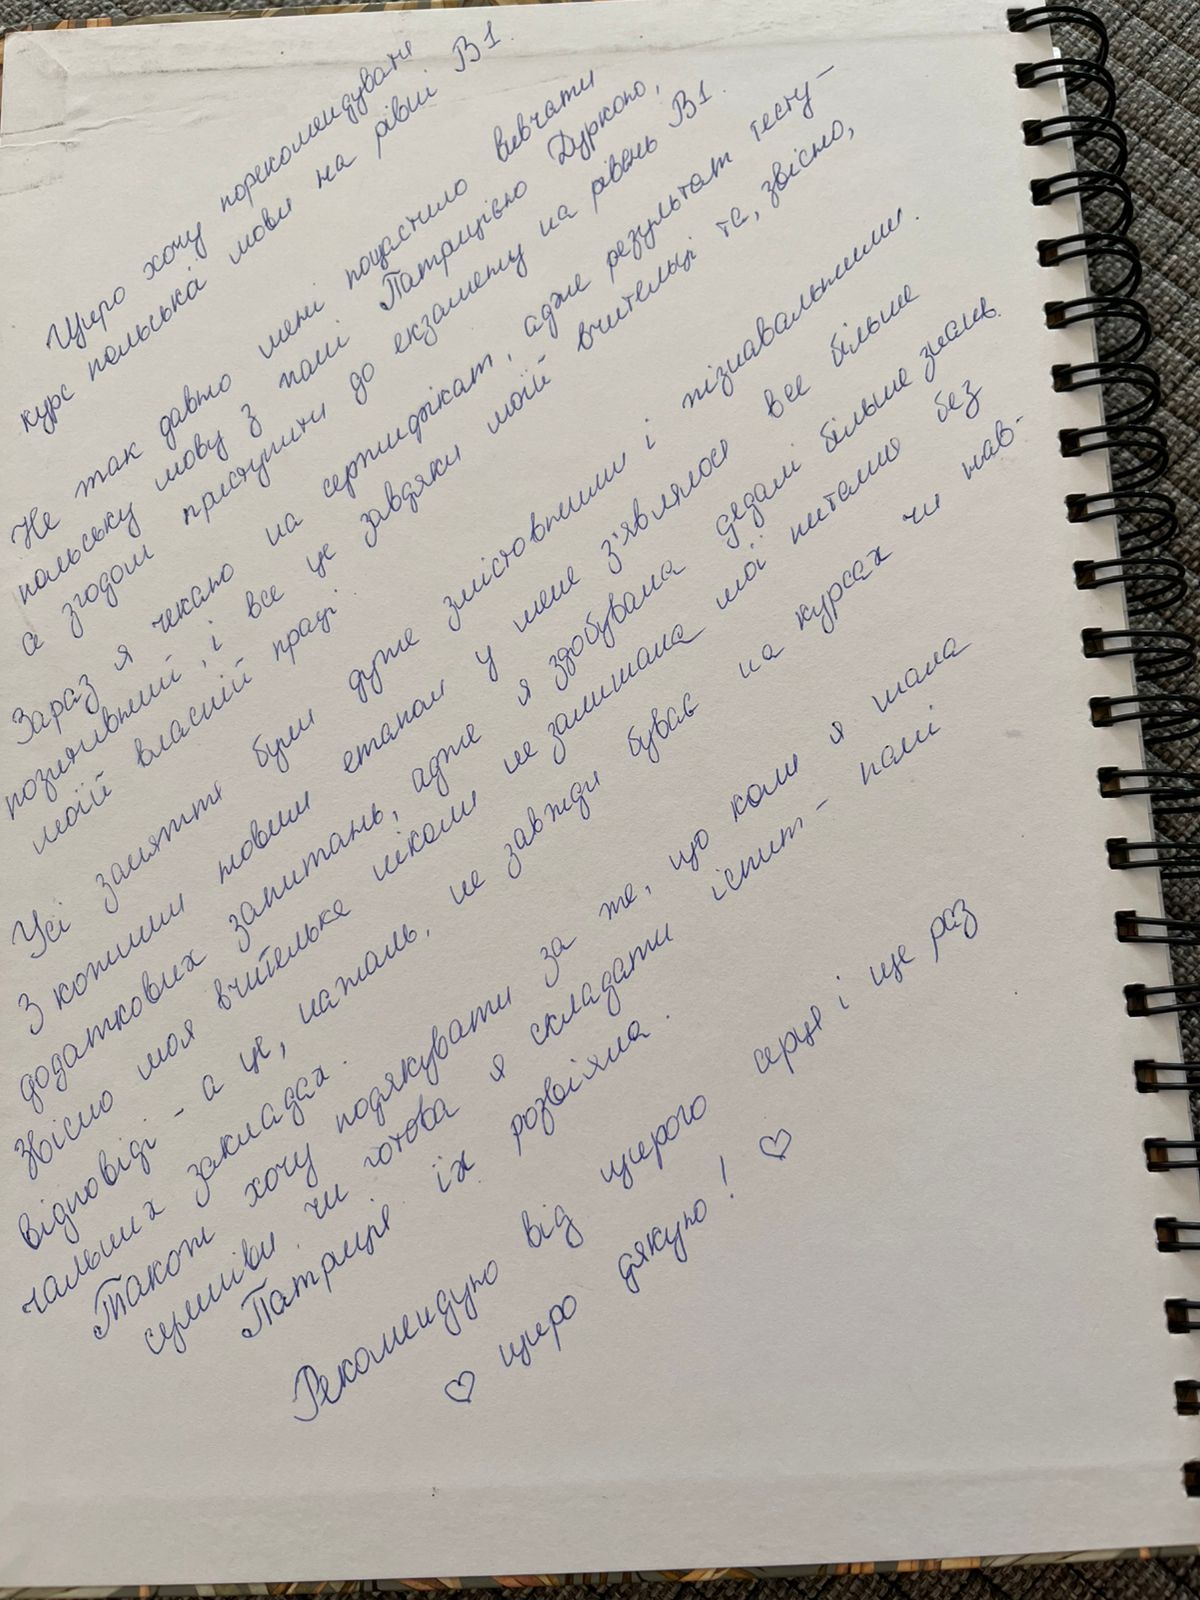 Щиро хочу порекомендувати
курс польська мови на рівні B1.
Не так давно мені пощастило вивчати
польську мову з пані Патрицією Дуркою,
а згодом приступити до екзамену на рівень B1.
Зараз я чекаю на сертифікат, адже результат тесту –
позитивний, і все це завдяки моїй вчительці та, звісно,
моїй власній праці.
Усі заняття були дуже змістовними і пізнавальними.
З кожним новим етапом у мене з'являлося все більше
додаткових запитань, адже я здобувала дедалі більше знань.
Звісно моя вчителька ніколи не залишала мої питання без
відповіді – а це, на жаль, не завжди буває на курсах чи нав-
чальних закладах.
Також хочу подякувати за те, що коли я мала
сумніви чи готова я складати іспит – пані
Патриція їх розвіяла.
Рекомендую від щирого серця і ще раз
♡ щиро дякую! ♡